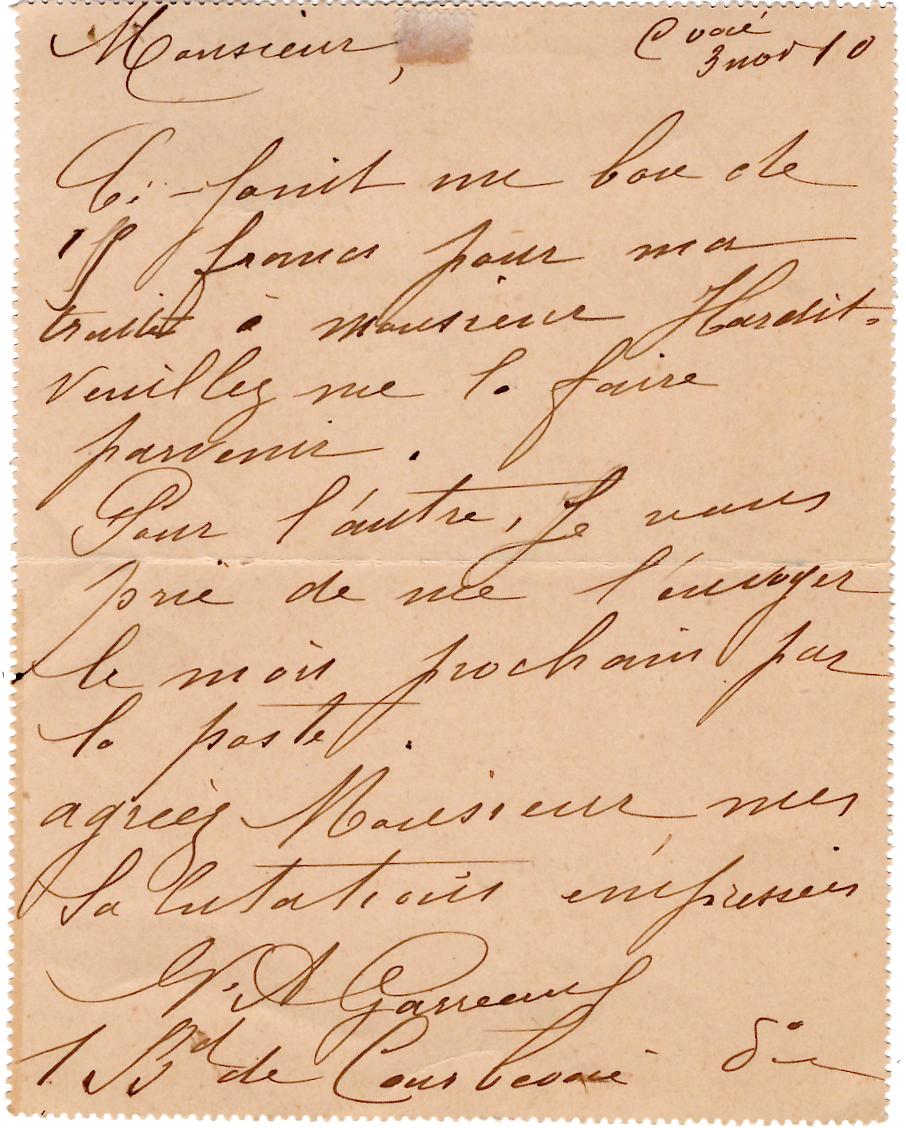 Monsieur,
C voié
3 nov 10
Ci-Joint un bon de
francs pour ma
traite à monsieur Hardit-
Veuillez me la faire
parvenir.
Pour l'autre, Je vous
prie de me l'envoyer
le mois prochain par
la poste.
agréez Monsieur mes
Salutations empressées
A Garreau
1 Bd de Courbevoie do